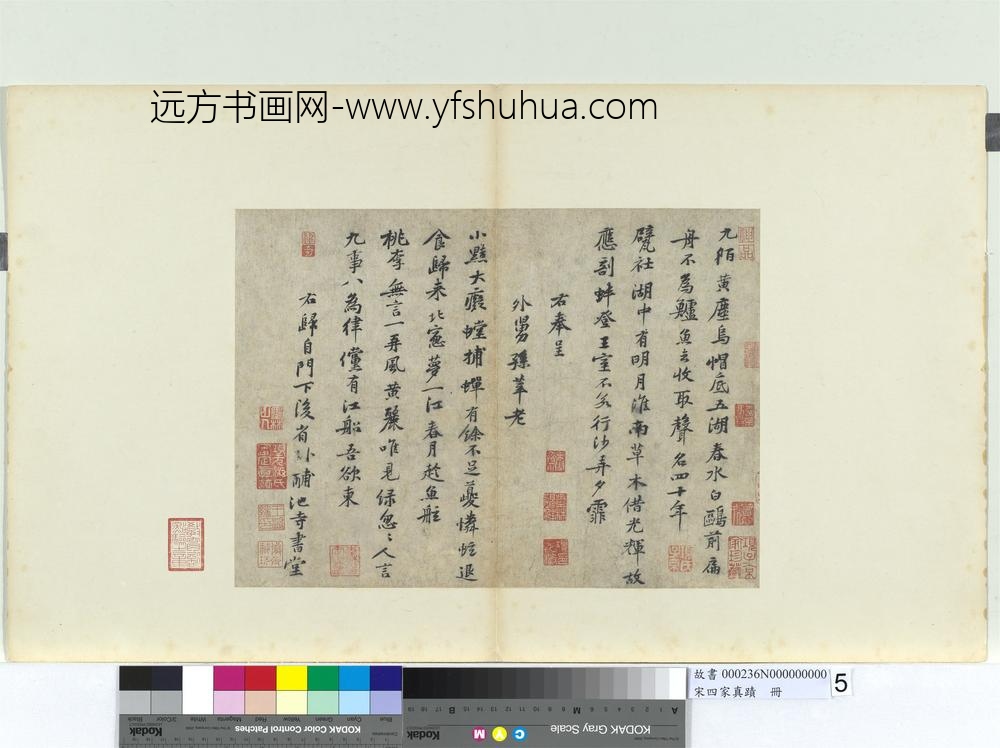 远方书画网-www.yfshuhua.com
九陌黃塵烏帽底五湖春水白鷗前扁
舟不為鱸魚去收取聲名四十年
甓社湖中有明月淮南草木借光輝故
應剖蚌登王室不若行沙弄夕霏
右奉呈
外舅孫莘老
小黠大癡螳捕蟬有餘不足夔憐蚿退
食歸來北窻夢一江春月趁魚舡
桃李無言一再風黃鸝唯見綠怱〻人言
九事八為律儻有江船吾欲東
右歸自門下後省卧酺池寺書堂
故書 000236N000000000
宋四家真蹟 冊
5
Kodak
KODAK Color Control Patches
Blue
Cyan
Green
Yellow
Red
Magenta
White
3/Color
Black
KODAK Gray Scale
C Y M
A
M
B